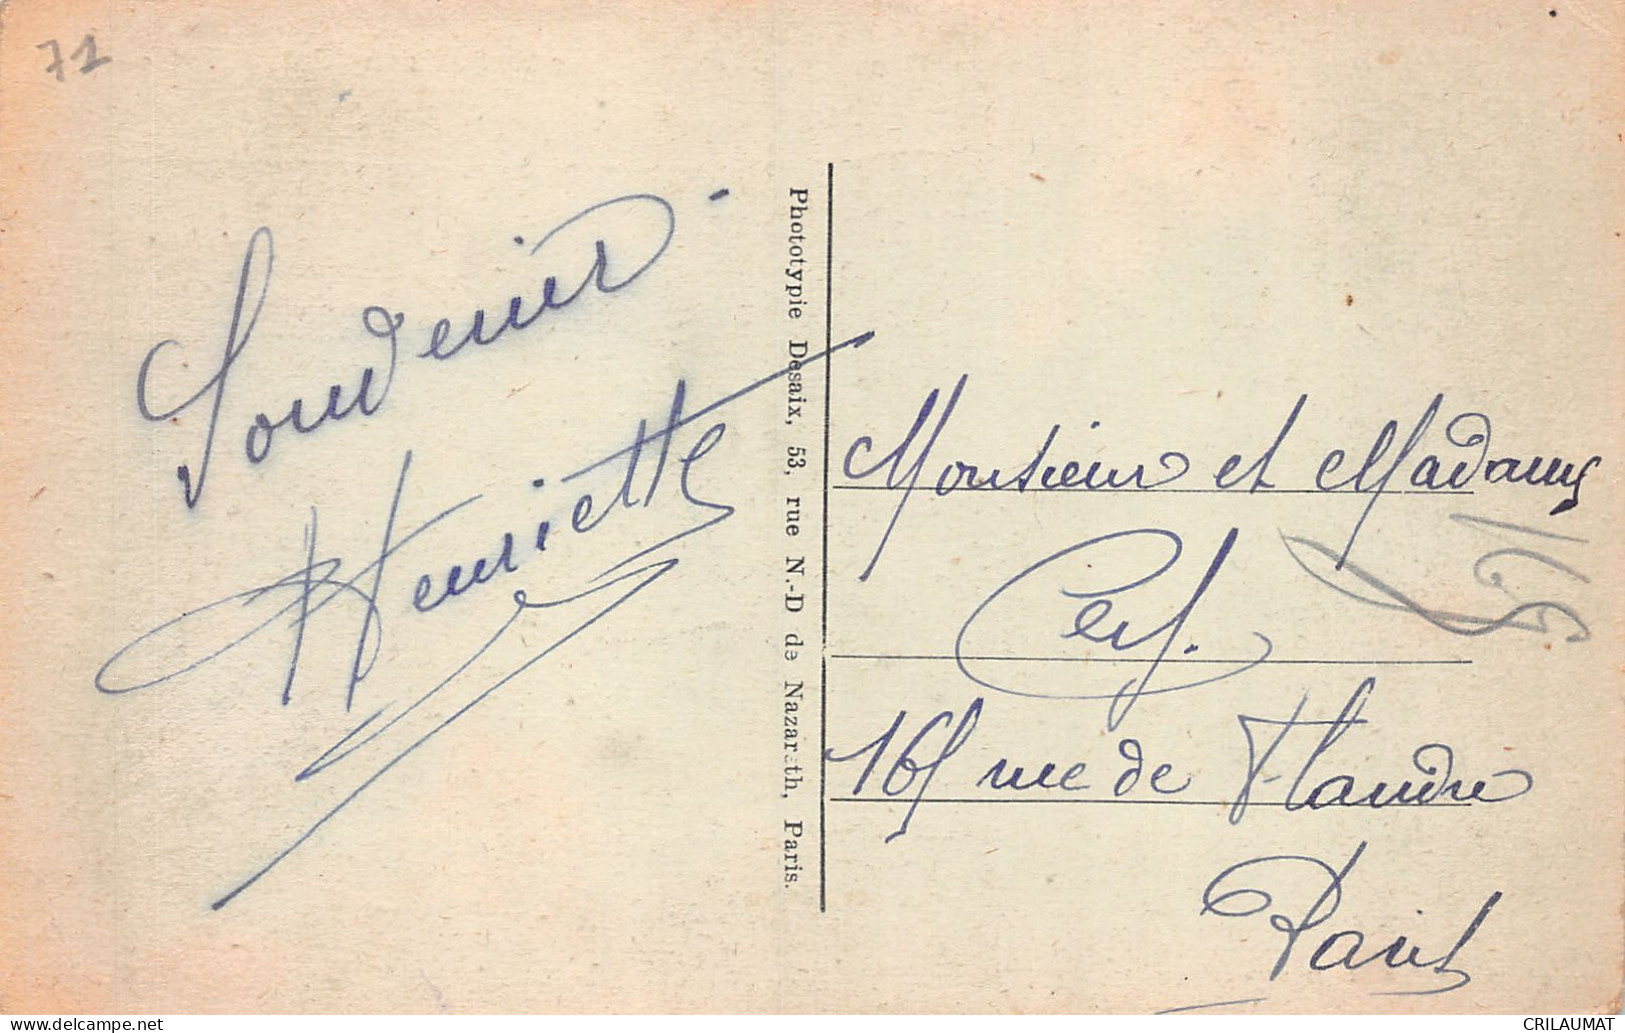 71
Souvenir
Henriette
Phototypie Desaix, 53, rue N.-D de Nazareth, Paris.
Monsieur et Madame
Cerf.
161 rue de Flandre
Paris
CRILAUMAT